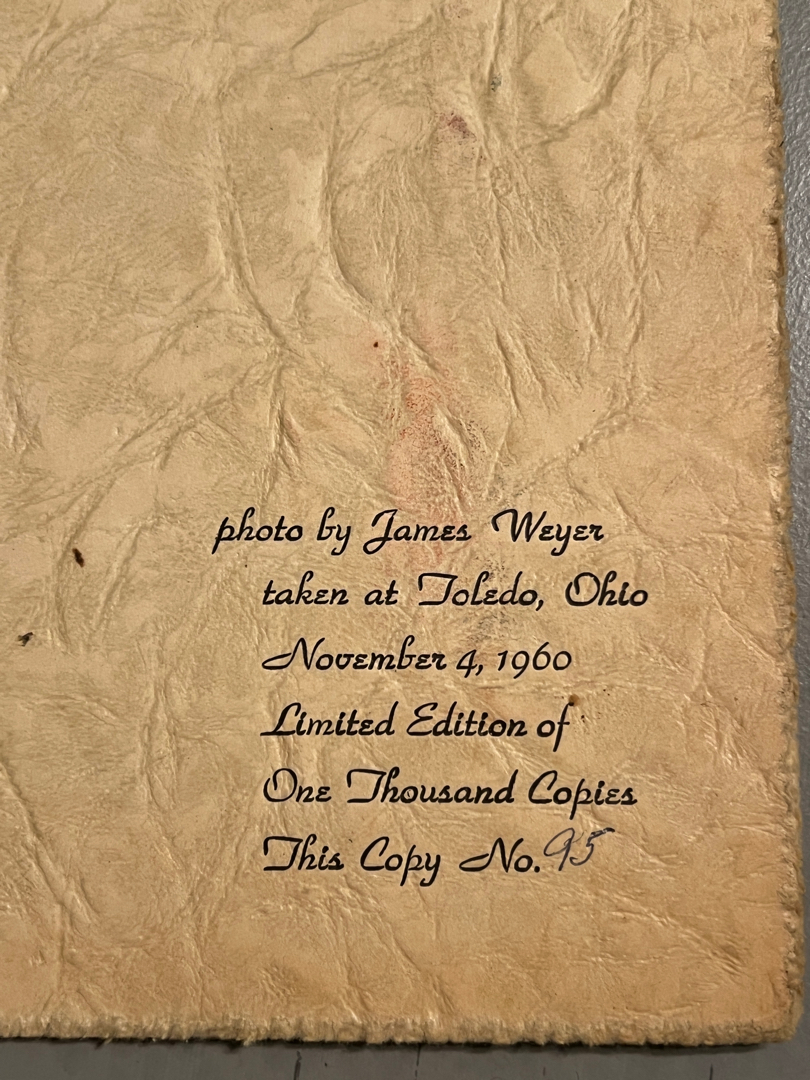 photo by James Weyer
taken at Toledo, Ohio
November 4, 1960
Limited Edition of
One Thousand Copies
This Copy No. 95